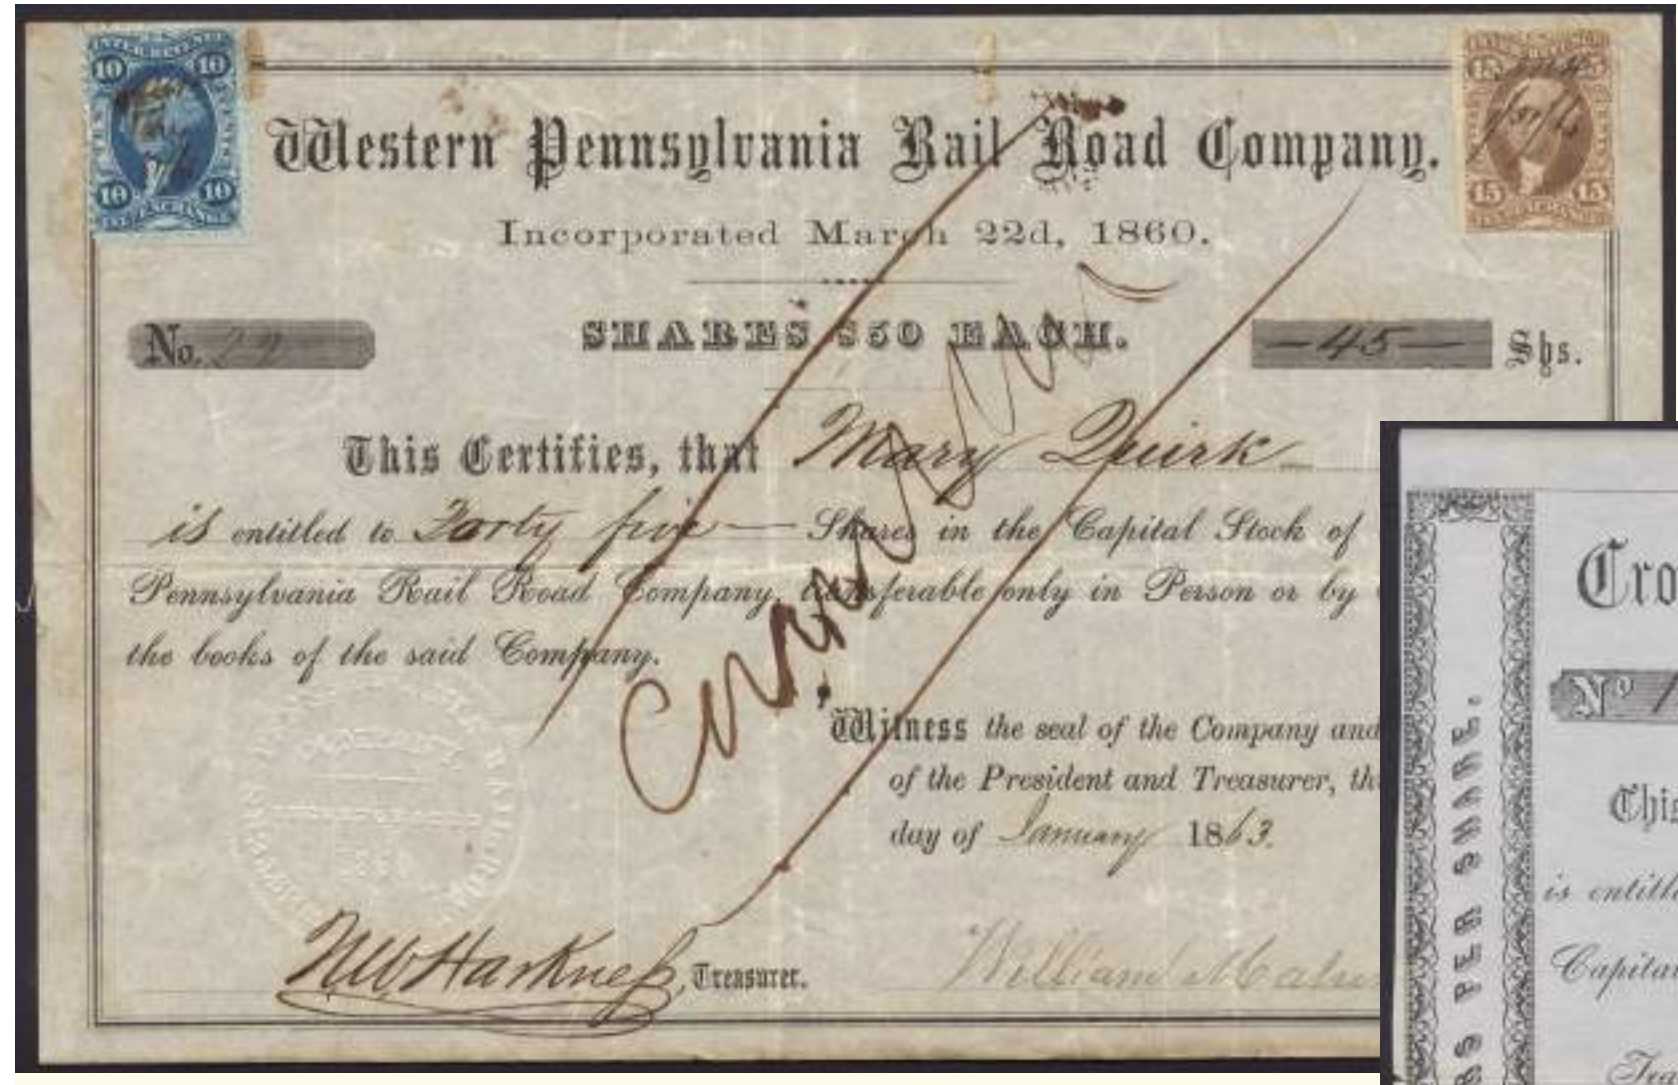 INTER. REVENUE
10 10
10 10
15 15
Western Pennsylvania Rail Road Company.
Incorporated March 22d, 1860.
No. 22
SHARES $50 EACH.
—45— Shs.
This Certifies, that Mary Quirk
is entitled to Forty five Shares in the Capital Stock of
Pennsylvania Rail Road Company, transferable only in Person or by
the books of the said Company.
Witness the seal of the Company and
of the President and Treasurer, th
day of January 1863.
Treasurer.
William
Cro
No
This
PER SHARE.
is entitl
Capita